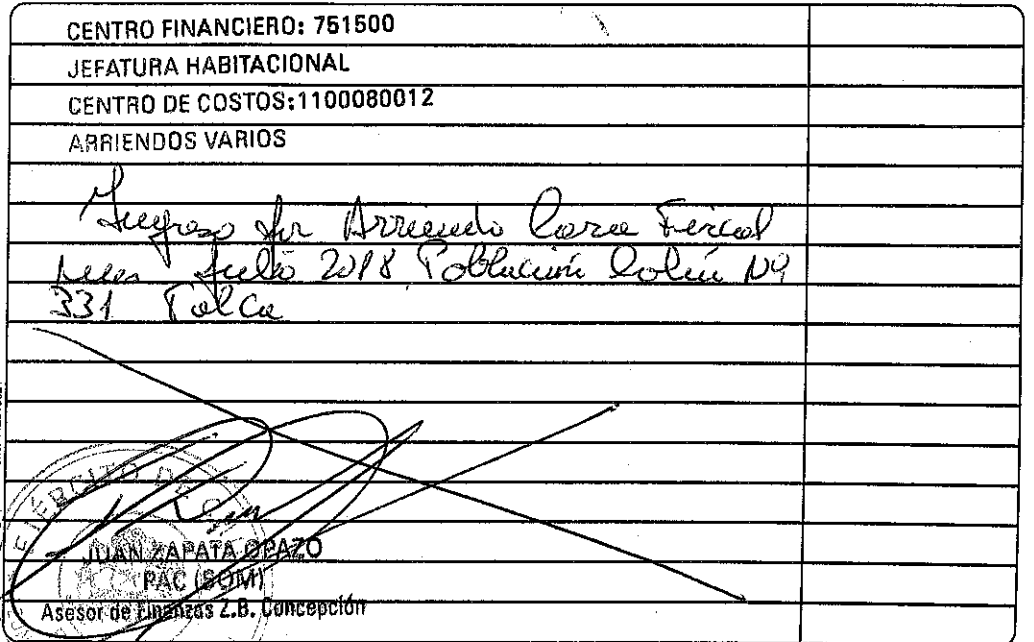 CENTRO FINANCIERO: 751500
JEFATURA HABITACIONAL
CENTRO DE COSTOS:1100080012
ARRIENDOS VARIOS
Ingreso por Arriendo Casa Fiscal
mes Julio 2018 Población Colín Nº
331 Talca
EJÉRCITO DE
JUAN ZAPATA OPAZO
PAC (SOM)
Asesor de Finanzas Z.B. Concepción